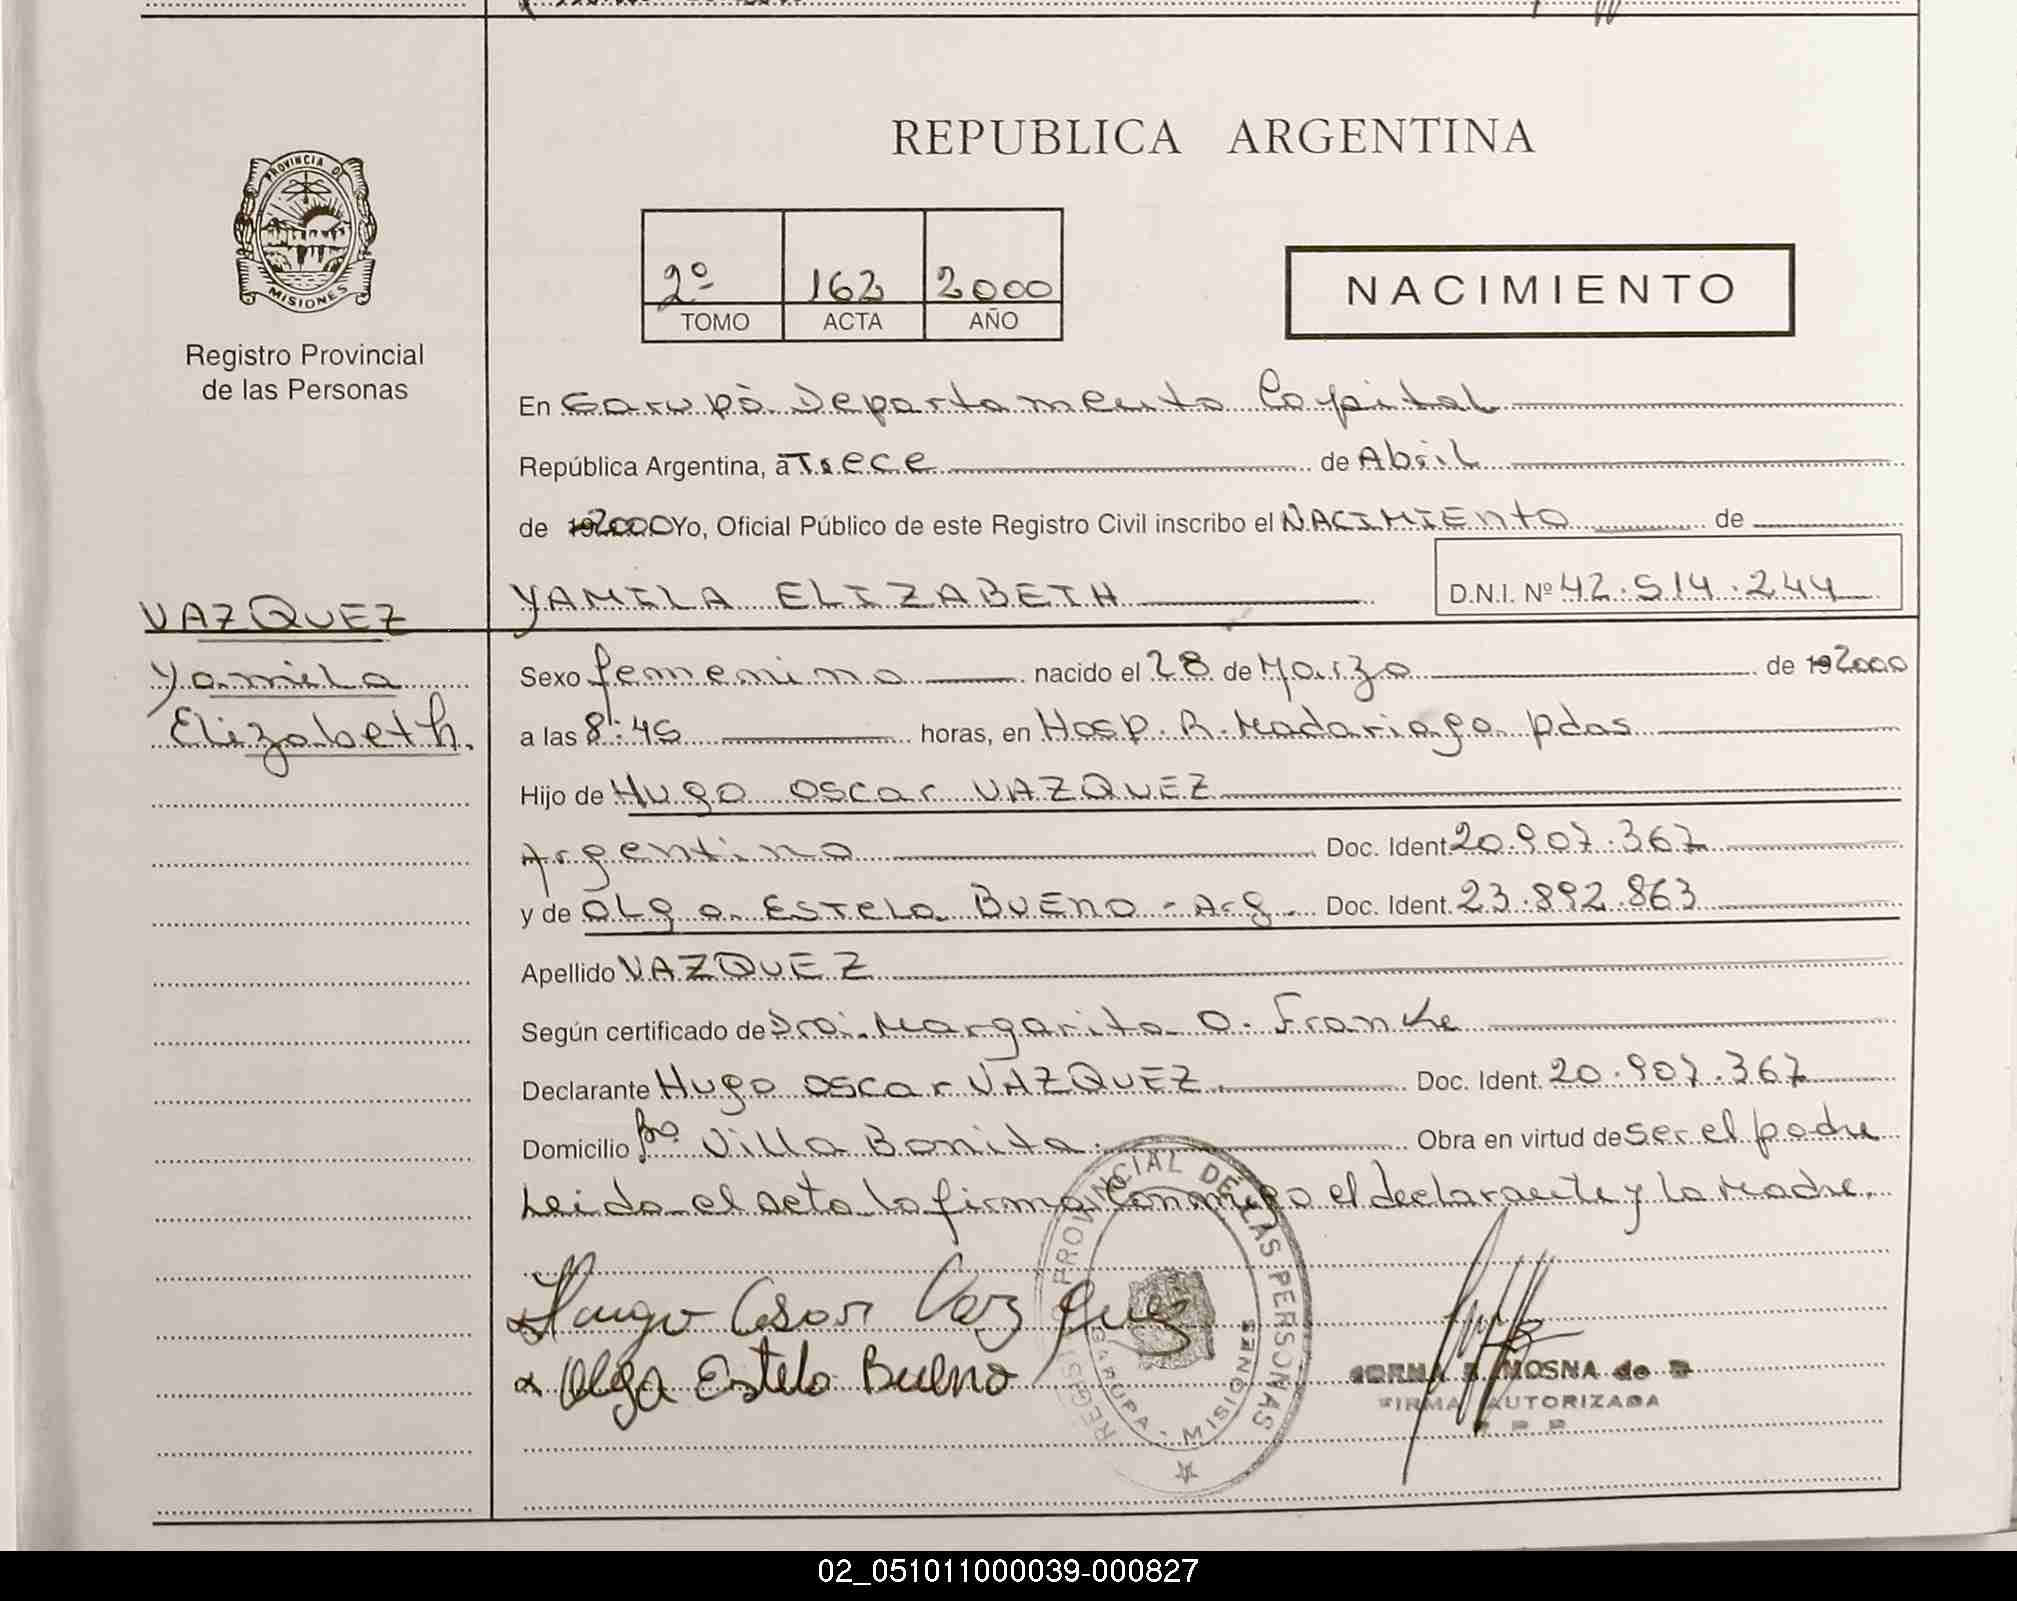 PROVINCIA DE
MISIONES
Registro Provincial
de las Personas
REPUBLICA ARGENTINA
2º 162 2000
TOMO ACTA AÑO
NACIMIENTO
En Garupà Departamento Capital
República Argentina, a Trece de Abril
de 192000 Yo, Oficial Público de este Registro Civil inscribo el NACIMIENTO de
VAZQUEZ
YAMILA ELIZABETH D.N.I. Nº 42.514.244
Yamila
Elizabeth.
Sexo femenino nacido el 28 de Marzo de 192000
a las 8:45 horas, en Hosp. R. Madariaga pdas
Hijo de Hugo Oscar VAZQUEZ
Argentino Doc. Ident. 20.907.367
y de Olga Estela BUENO - Arg. Doc. Ident. 23.892.863
Apellido VAZQUEZ
Según certificado de Dra. Margarita O. Franke
Declarante Hugo Oscar VAZQUEZ. Doc. Ident. 20.907.367
Domicilio Bº Villa Bonita. Obra en virtud de ser el padre
Leida el acta la firma Conmigo el declarante y la Madre.
Hugo Osar Vazquez
Olga Estela Bueno
REGISTRO PROVINCIAL DE LAS PERSONAS
GARUPA - MISIONES
MOSNA de
FIRMA AUTORIZADA
02_051011000039-000827